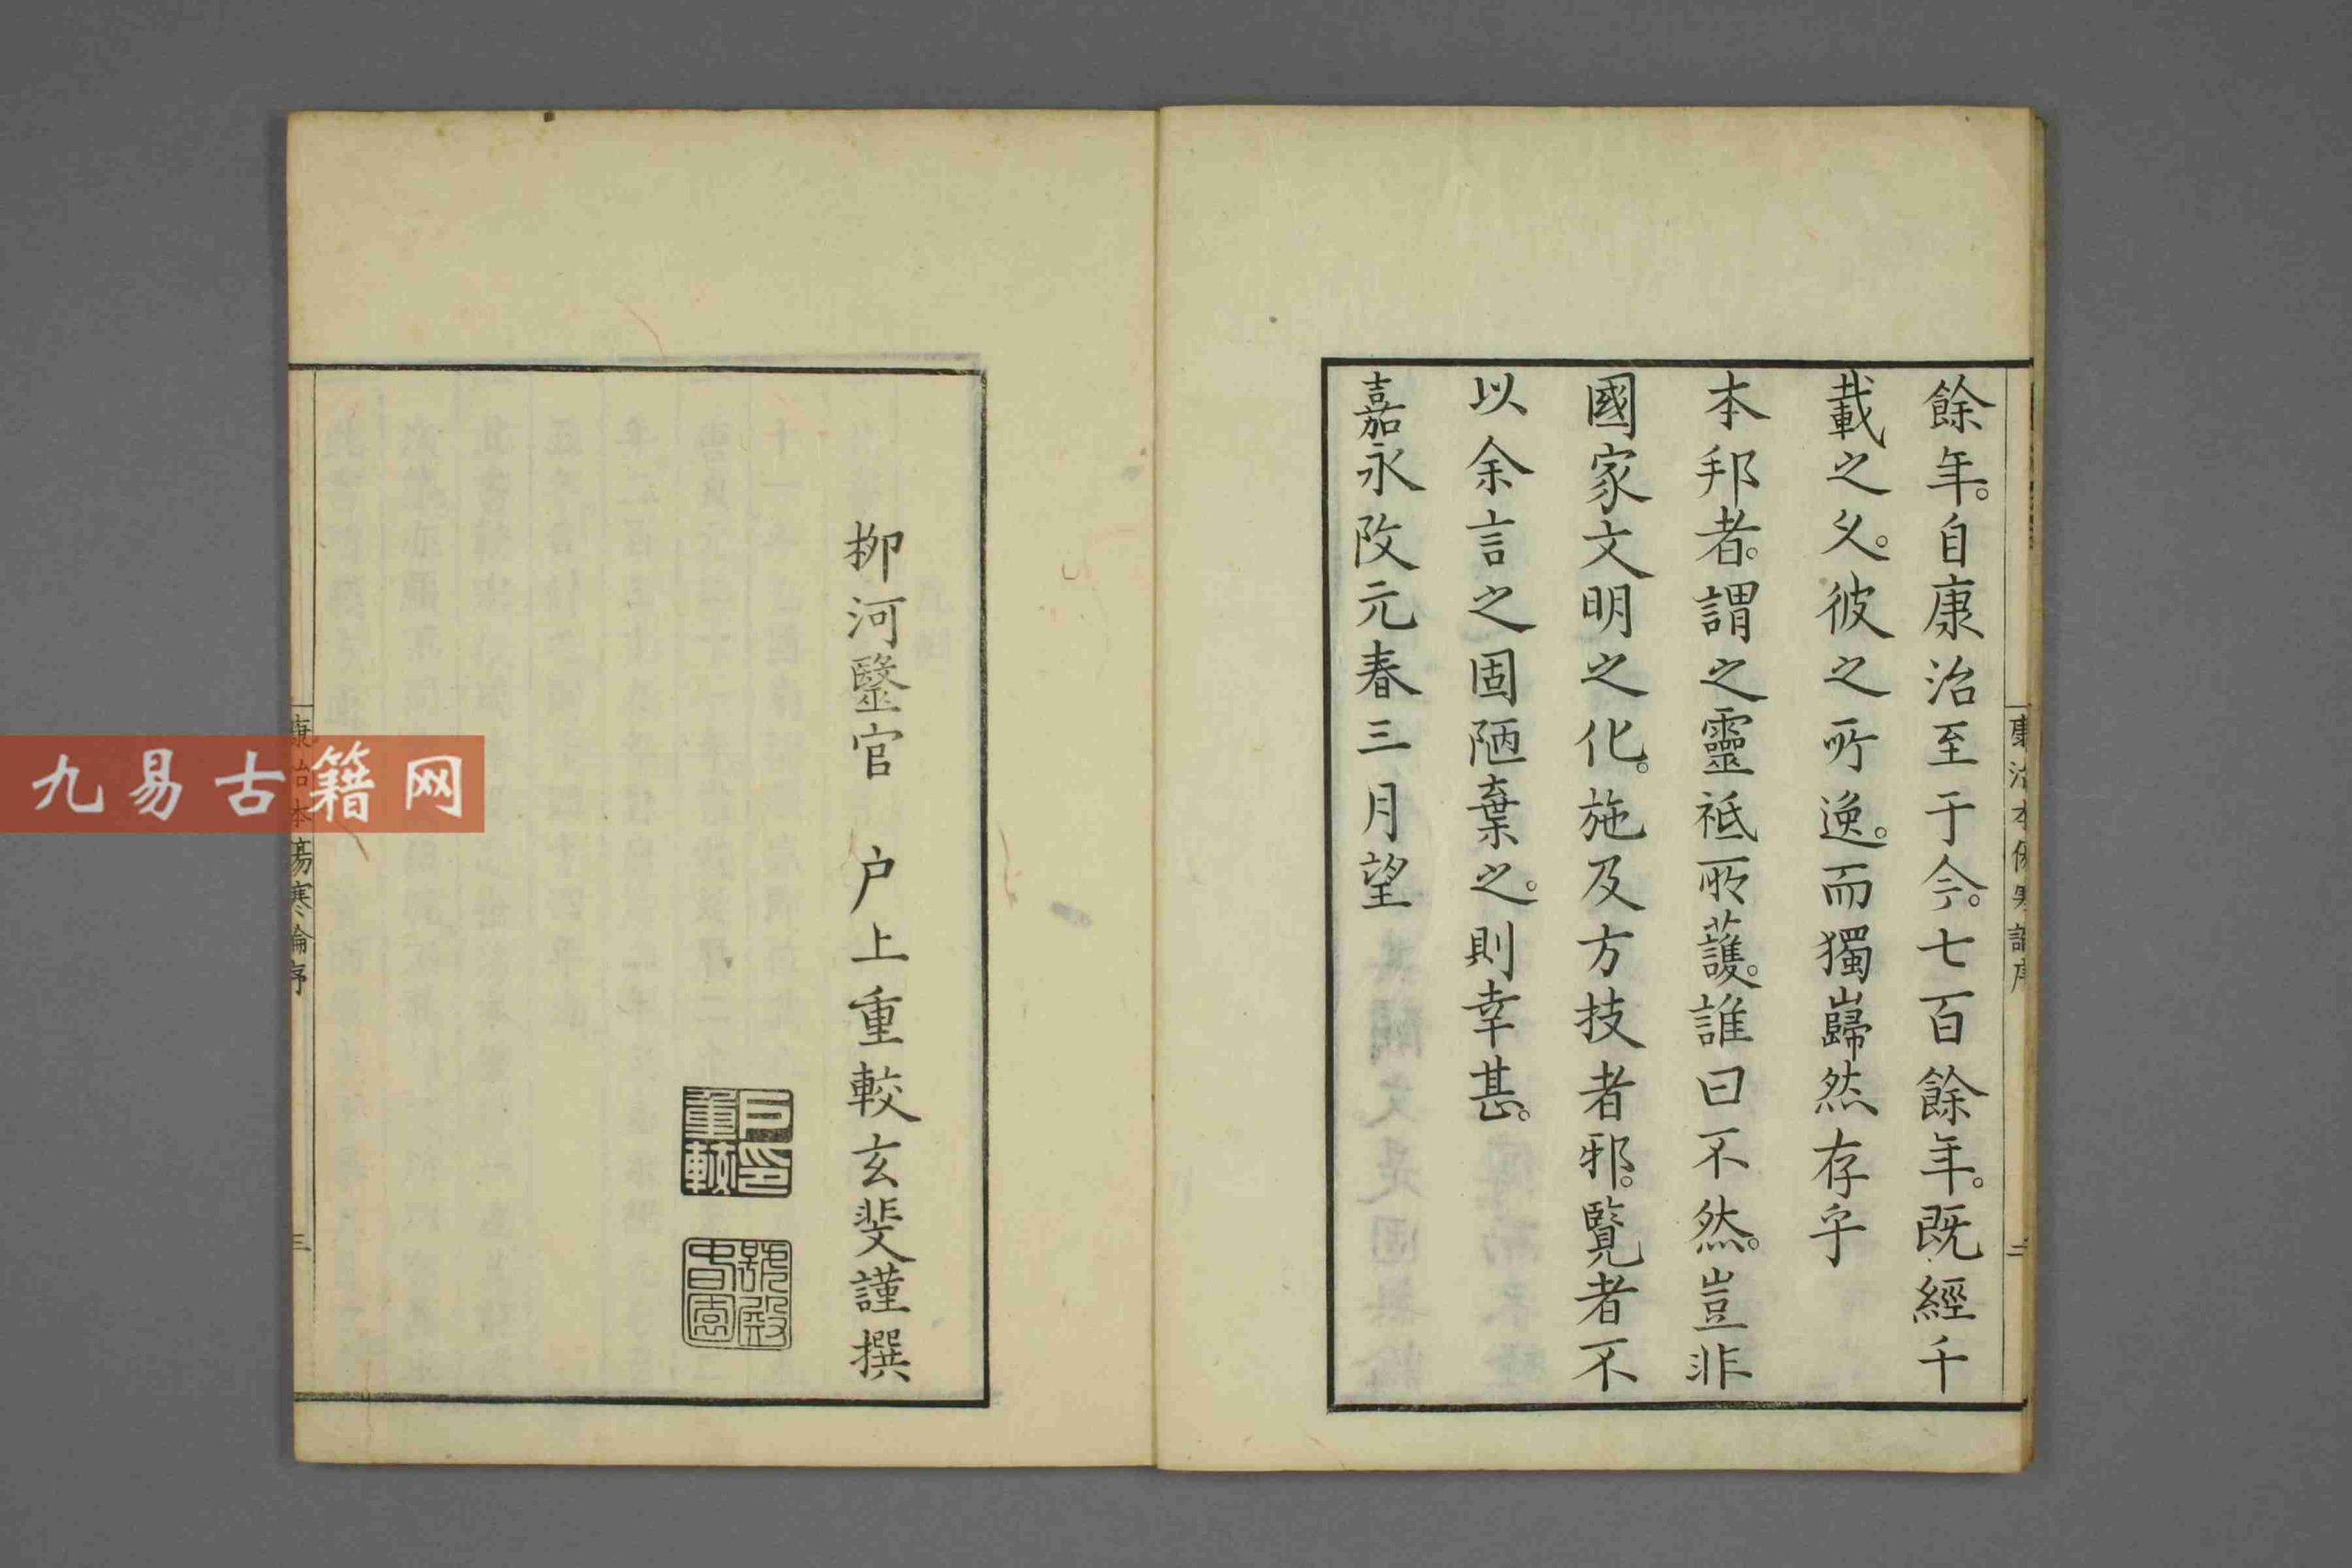 餘年。自康治至于今。七百餘年。既經千
載之久。彼之所逸。而獨巋然存乎
本邦者。謂之靈祗所護。誰曰不然。豈非
國家文明之化。施及方技者邪。覽者不
以余言之固陋棄之。則幸甚。
嘉永改元春三月望
柳河毉官 户上重較玄斐謹撰
康治本傷寒論序
二
康治本傷寒論序
三
九易古籍网